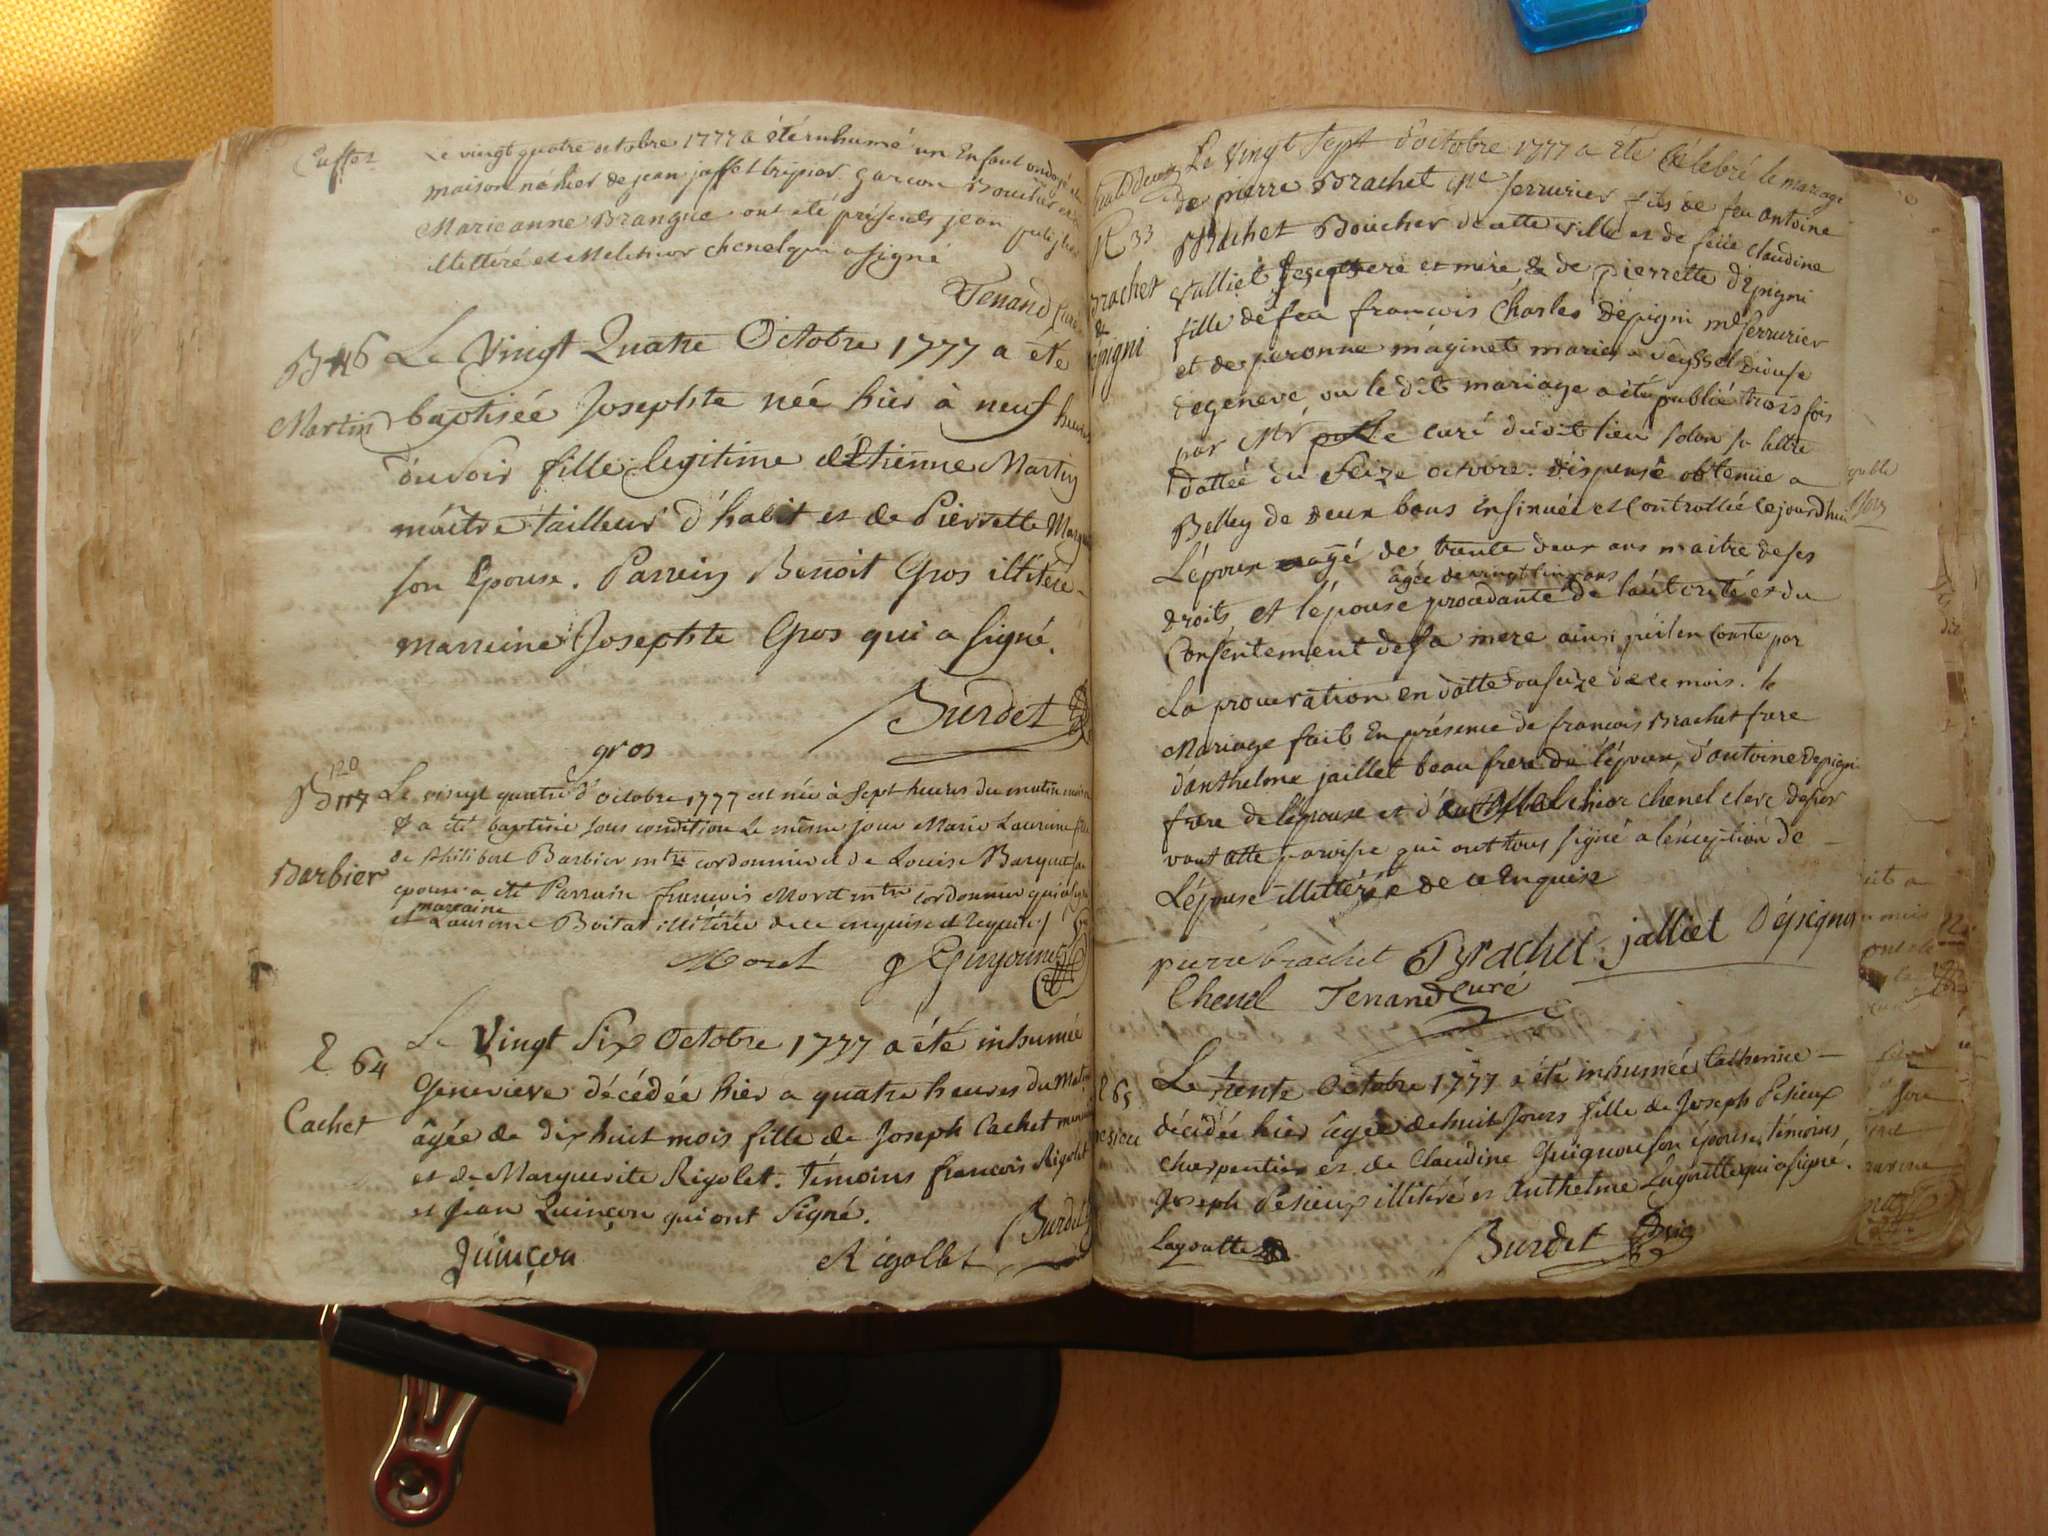 Le vingt quatre octobre 1777 a été inhumé un Enfant ondoyé a la
maison né hier de jean jaffet tripier garçon Boucher et de
Marie anne Brangue ont été présents jean
illittéré et Melchior chenel qui a signé
Tenand Curé
B 116 Le Vingt Quatre Octobre 1777 a été
Martin baptisée Josephte née hier à neuf heures
du soir fille legitime d'Etienne Martin
maître tailleur d'habit et de Pierrette
son Epouse. Parrein Benoit Gros illitéré
marreine Josephte Gros qui a signé.
Burdet
gros
120
B 117 Le vingt quatre d'octobre 1777 est née à sept heures du matin
& a été baptisée sous condition Le même jour Marie Laurence fille
de Philibert Barbier mtre cordonnier et de Louise
Barbier
epouse a été Parrain françois Moret mtre cordonnier qui a signé
marraine
et Laurence Boitat illitérée de ce enquise et requise
Moret Guyounet
Le Vingt Six Octobre 1777 a été inhumée
64
Genevieve décédée hier a quatre heures du Matin
Cachet
âgée de dix huit mois fille de Joseph Cachet
et de Marguerite Rigolet. Témoins françois Rigolet
et Jean Quinçon qui ont Signé.
Burdet
Quinçon Rigollet
Le Vingt Sept d'octobre 1777 a été Célebré le mariage
de pierre Brachet serrurier fils de feu antoine
33
Brachet Boucher de cette ville et de feüe Claudine
Brachet
Valliet ses pere et mere & de pierrette Dépigni
&
fille de feu francois Charles Dépigni me serrurier
épigni
et de peronne maginet mariés a Seyssel Diouse
de geneve ou le dit mariage a été publié trois fois
par Mr curé du dit lieu selon sa lettre
dattée du Seize octobre. dispense obtenue a
Belley de deux bans insinuée et Controllée cejourdhui
L'époux agé de trente deux ans maitre de ses
âgée de vingt cinq ans
droits et l'épouse procedante de l'autorité et du
Consentement de sa mere ainsi qu'il en Conste par
La procuration en datte du seize de ce mois. le
Mariage fait En présence de francois Brachet frere
d'anthelme jaillet beau frere de l'époux, d'antoine Depigni
frere de l'épouse et de Melchior Chenel clerc desser
vant cette paroisse qui ont tous signé a l'exception de
L'épouse illittérée de ce Enquise
pierre brachet Brachet jalliet Dépigni
Chenel Tenand Curé
Le trente Octobre 1777 a été inhumée Catherine
65
décédée hier âgée de huit Jours fille de Joseph Pesieux
charpentier et de Claudine Guignon son épouse, témoins
Joseph Pesieux illitéré et Anthelme Lagoutte qui a signé.
Lagoutte Burdet